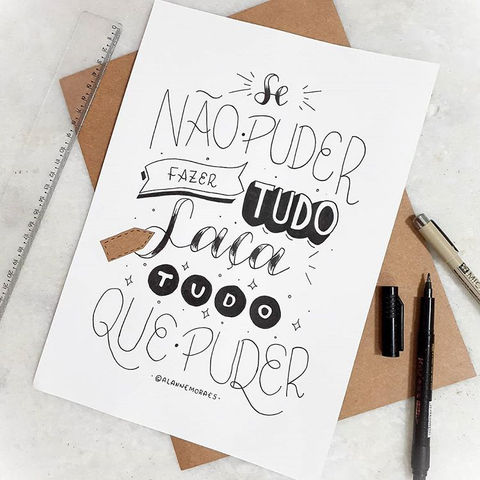 Se
NÃO·PUDER
FAZER
TUDO
Faça
TUDO
QUE·PUDER
·©ALANNEMORAES·